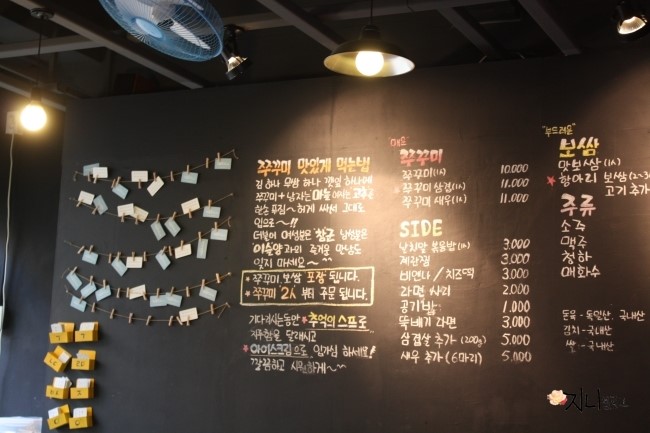 쭈꾸미 맛있게 먹는법
김 하나 무쌈 하나 깻잎 하나에
쭈꾸미 + 날치알 마늘 아니면 고추
한손 푸짐~ 하게 싸서 그대로
입으로~!!
더불어 여성분은 참군 남성분은
이슬양 과의 즐거운 만남도
잊지 마세요~^^
*쭈꾸미, 보쌈 포장 됩니다.
*쭈꾸미 2人 부터 주문 됩니다.
기다리시는동안 추억의 스프로
지루함을 달래시고
*아이스크림으로 입가심 하세요!
깔끔하고 시원하게~^^
"매운"
쭈꾸미
쭈꾸미(1人) 10.000
쭈꾸미 삼겹(1人) 11.000
쭈꾸미 새우(1人) 11.000
SIDE
날치알 볶음밥(1人) 3.000
계란찜 3.000
비엔나/치즈떡 3.000
라면 사리 2.000
공기밥 1.000
뚝배기 라면 3.000
삼겹살 추가 (200g) 5.000
새우 추가 (6마리) 5.000
"부드러운"
보쌈
맛보쌈(1人)
*항아리 보쌈(2~3
고기 추가
주류
소주
맥주
청하
매화수
돈육 - 독일산, 국내산
김치 - 국내산
쌀 - 국내산
지니